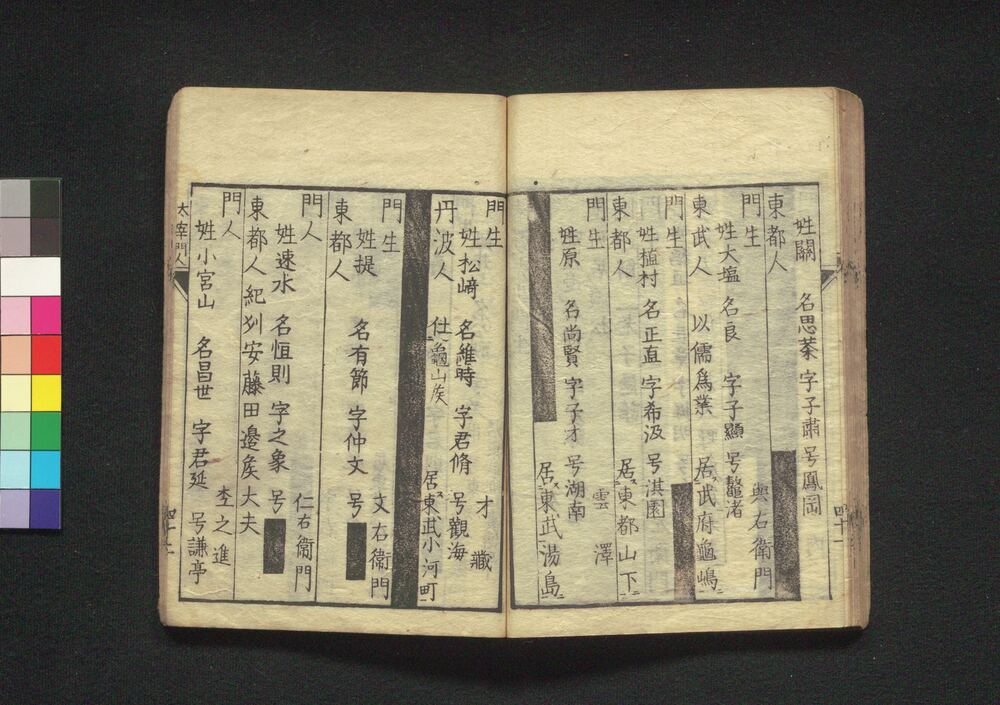 姓關 名思蓁 字子肅 号鳳岡
東都人
門生 與右衛門
姓大塩 名良 字子顯 号鼇渚
東武人 以儒爲業 居武府龜嶋
門生
姓植村 名正直 字希汲 号淇園
東都人 居東都山下
門生 雲澤
姓原 名尚賢 字子才 号湖南
居東武湯島
門生 才藏
姓松﨑 名維時 字君脩 号觀海
丹波人 仕龜山矦 居東武小河町
門生 文右衛門
姓提 名有節 字仲文 号
東都人
門人 仁右衛門
姓速水 名恒則 字之象 号
東都人 紀刕安藤田邉矦大夫
門人 李之進
姓小宮山 名昌世 字君延 号謙亭
太宰門人
四十一